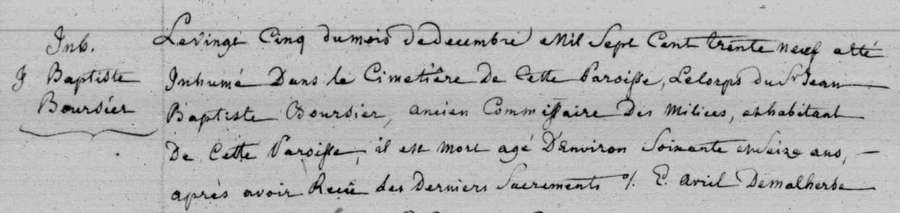 Inh.
J Baptiste
Boursier
Le vingt Cinq du mois de decembre Mil Sept Cent trente neuf a eté
Inhumé Dans le Cimetière De Cette Paroisse, Le Corps du Sr Jean
Baptiste Boursier, ancien Commissaire Des Milices, et habitant
De Cette Paroisse, il est mort agé D'Environ Soixante et Seize ans, —
après avoir Reçu des Derniers Sacrements %. E. Avril Demalherbe